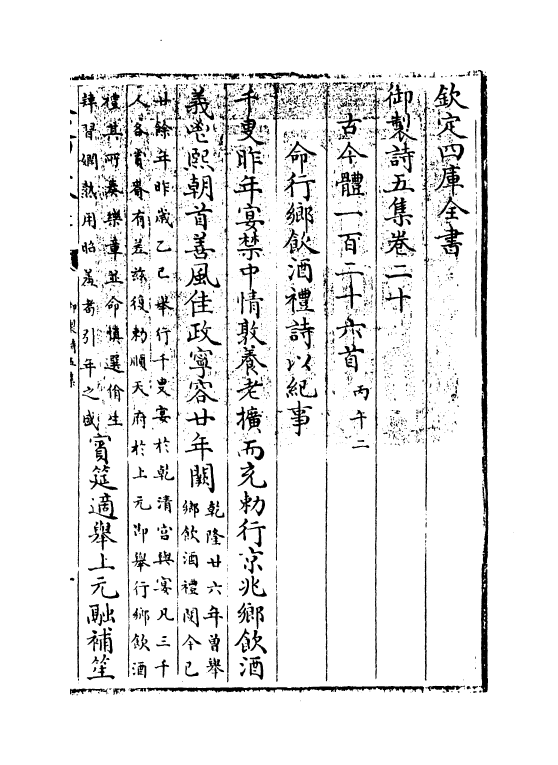 欽定四庫全書
御製詩五集卷二十
古今體一百二十六首丙午二
命行鄉飲酒禮詩以紀事
千叟昨年宴禁中情敦養老擴而充勅行京兆鄉飲酒
義邕熙朝首善風佳政寧容廿年闕乾隆廿六年曾舉
鄉飲酒禮閱今已
廿餘年昨歲乙巳舉行千叟宴於乾清宫與宴凡三千
人各賞賚有差兹復勅順天府於上元即舉行鄉飲酒
禮其所奏樂章並命慎選俏生
肄習嫻熟用昭羞耆引年之盛賓筵適舉上元融補笙